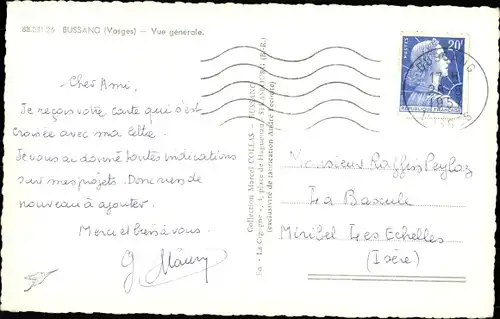 88.051 26 BUSSANG (Vosges) — Vue générale.
Cher Ami,
Je reçois votre carte qui s'est
croisée avec ma lettre.
Je vous ai donné toutes indications
sur mes projets. Donc rien de
nouveau à ajouter.
Merci et bien à vous.
G. Maury
Collection Marcel COLLAS — BUSSANG
"La Cigogne", 1, place de Haguenau, STRASBOURG (B.-R.)
(exclusivité de fabrication André Leconte)
POSTES 20F
REPUBLIQUE FRANÇAISE
BUSSANG
195
VOSGES
Monsieur Raffin Peyloz
La Bascule
Miribel Les Echelles
(Isère)